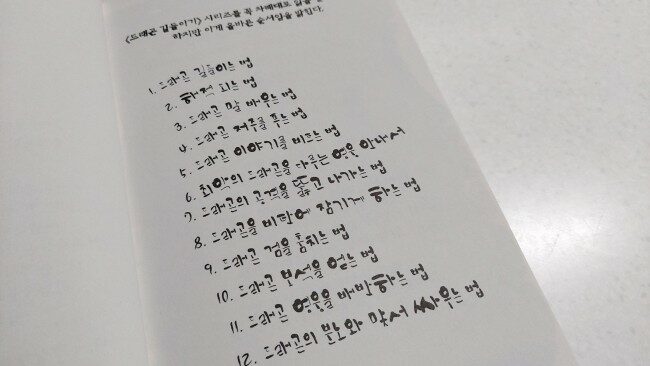 〈드래곤 길들이기〉 시리즈를 꼭 차례대로 읽을
하지만 이게 올바른 순서임을 밝힌다.
1. 드래곤 길들이는 법
2. 해적 되는 법
3. 드래곤 말 배우는 법
4. 드래곤 저주를 푸는 법
5. 드래곤 이야기를 비트는 법
6. 최악의 드래곤을 다루는 영웅 안내서
7. 드래곤의 공격을 뚫고 나가는 법
8. 드래곤을 비탄에 잠기게 하는 법
9. 드래곤 검을 훔치는 법
10. 드래곤 보석을 얻는 법
11. 드래곤 영웅을 배반하는 법
12. 드래곤의 분노와 맞서 싸우는 법